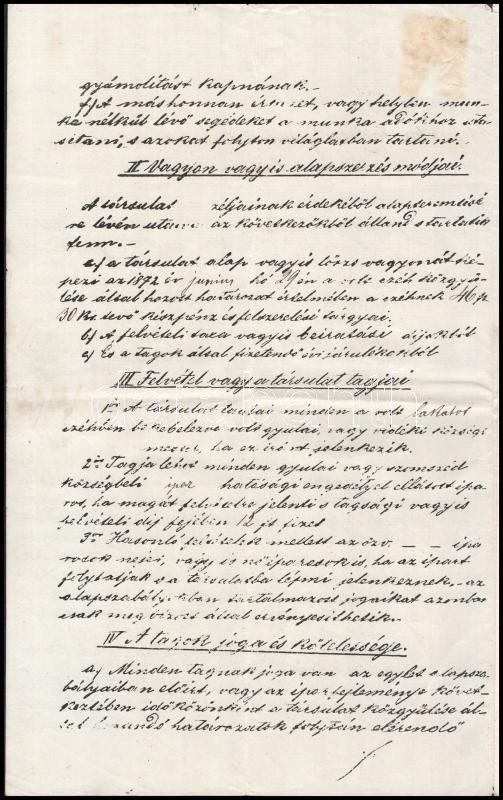 gyámolitást kapnának.–
f) A más honnan érkezet, vagy helyben mun-
ka nélkül lévő segédeket a munka adókhoz uta-
sitani, s azokat folyton világlatban tartani.
II Vagyon vagyis alapszerzés módjai.
A társulat céljainak érdekéből alapteremtésé
re lévén utalva az következőkből álland s tartatik
fenn.–
a) a társulat alap vagyis törzs vagyonát ké-
pezi az 1872 év junius hó 29 én a volt czéh közgyü-
lése által hozott határozat értelmében a czéhnek 46 fr
30 kr. tevő készpénz és felszerelési tárgyai.
b) A felvételi taxa vagyis beiratási dijakból
c) És a tagok által fizetendő évi járulékokból
III Felvétel vagy a társulat tagjai
1ör A társulat tagjai minden a volt lakatos
czéhben bekebelezve volt gyulai, vagy vidéki községi
mester, ha ez iránt jelenkezik.
2or Tagja lehet minden gyulai vagy szomszéd
községbeli ipar hatósági engedélyel ellátott ipa-
ros, ha magát felvételre jelenti s tagsági vagyis
felvételi dij fejében 12 ft fizet
3or Hasonló feltételek mellett az özv. – – ipa
rosok nejei, vagy is nő iparosok is, ha az ipart
folytatják s a társulatba lépni jelenkeznek, – az
alapszabályokban tartalmazot jogaikat azomban
csak megbizott által érvényesithetik.–
IV A tagok joga és kötelessége.
a) Minden tagnak joga van az egylet alapsza-
bályaiban előirt, vagy az ipar fejleménye követ-
keztében időközönként a társulat közgyülése ál-
tal hozandó határozatok folytán elérendő